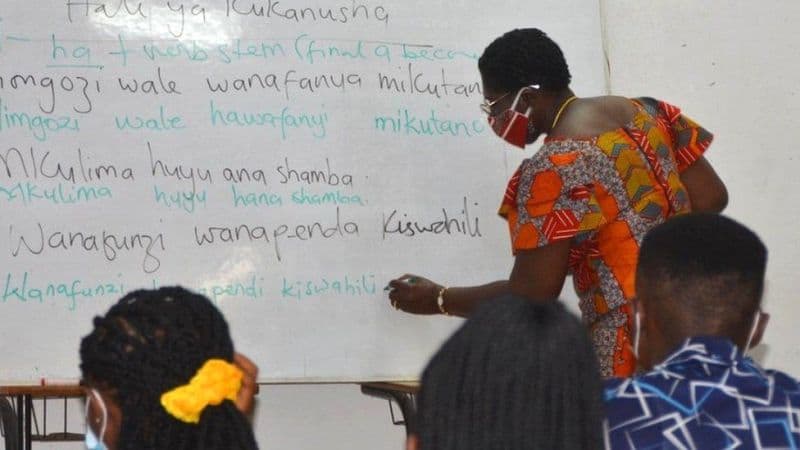 Hali ya Kukanusha
- ha + verb stem (final a becom
iongozi wale wanafanya mikutan
iimgozi wale hawafanyi mikutano
Mkulima huyu ana shamba.
Mkulima huyu hana shamba.
Wanafunzi wanapenda Kiswahili
Wanafunzi pendi kiswahili